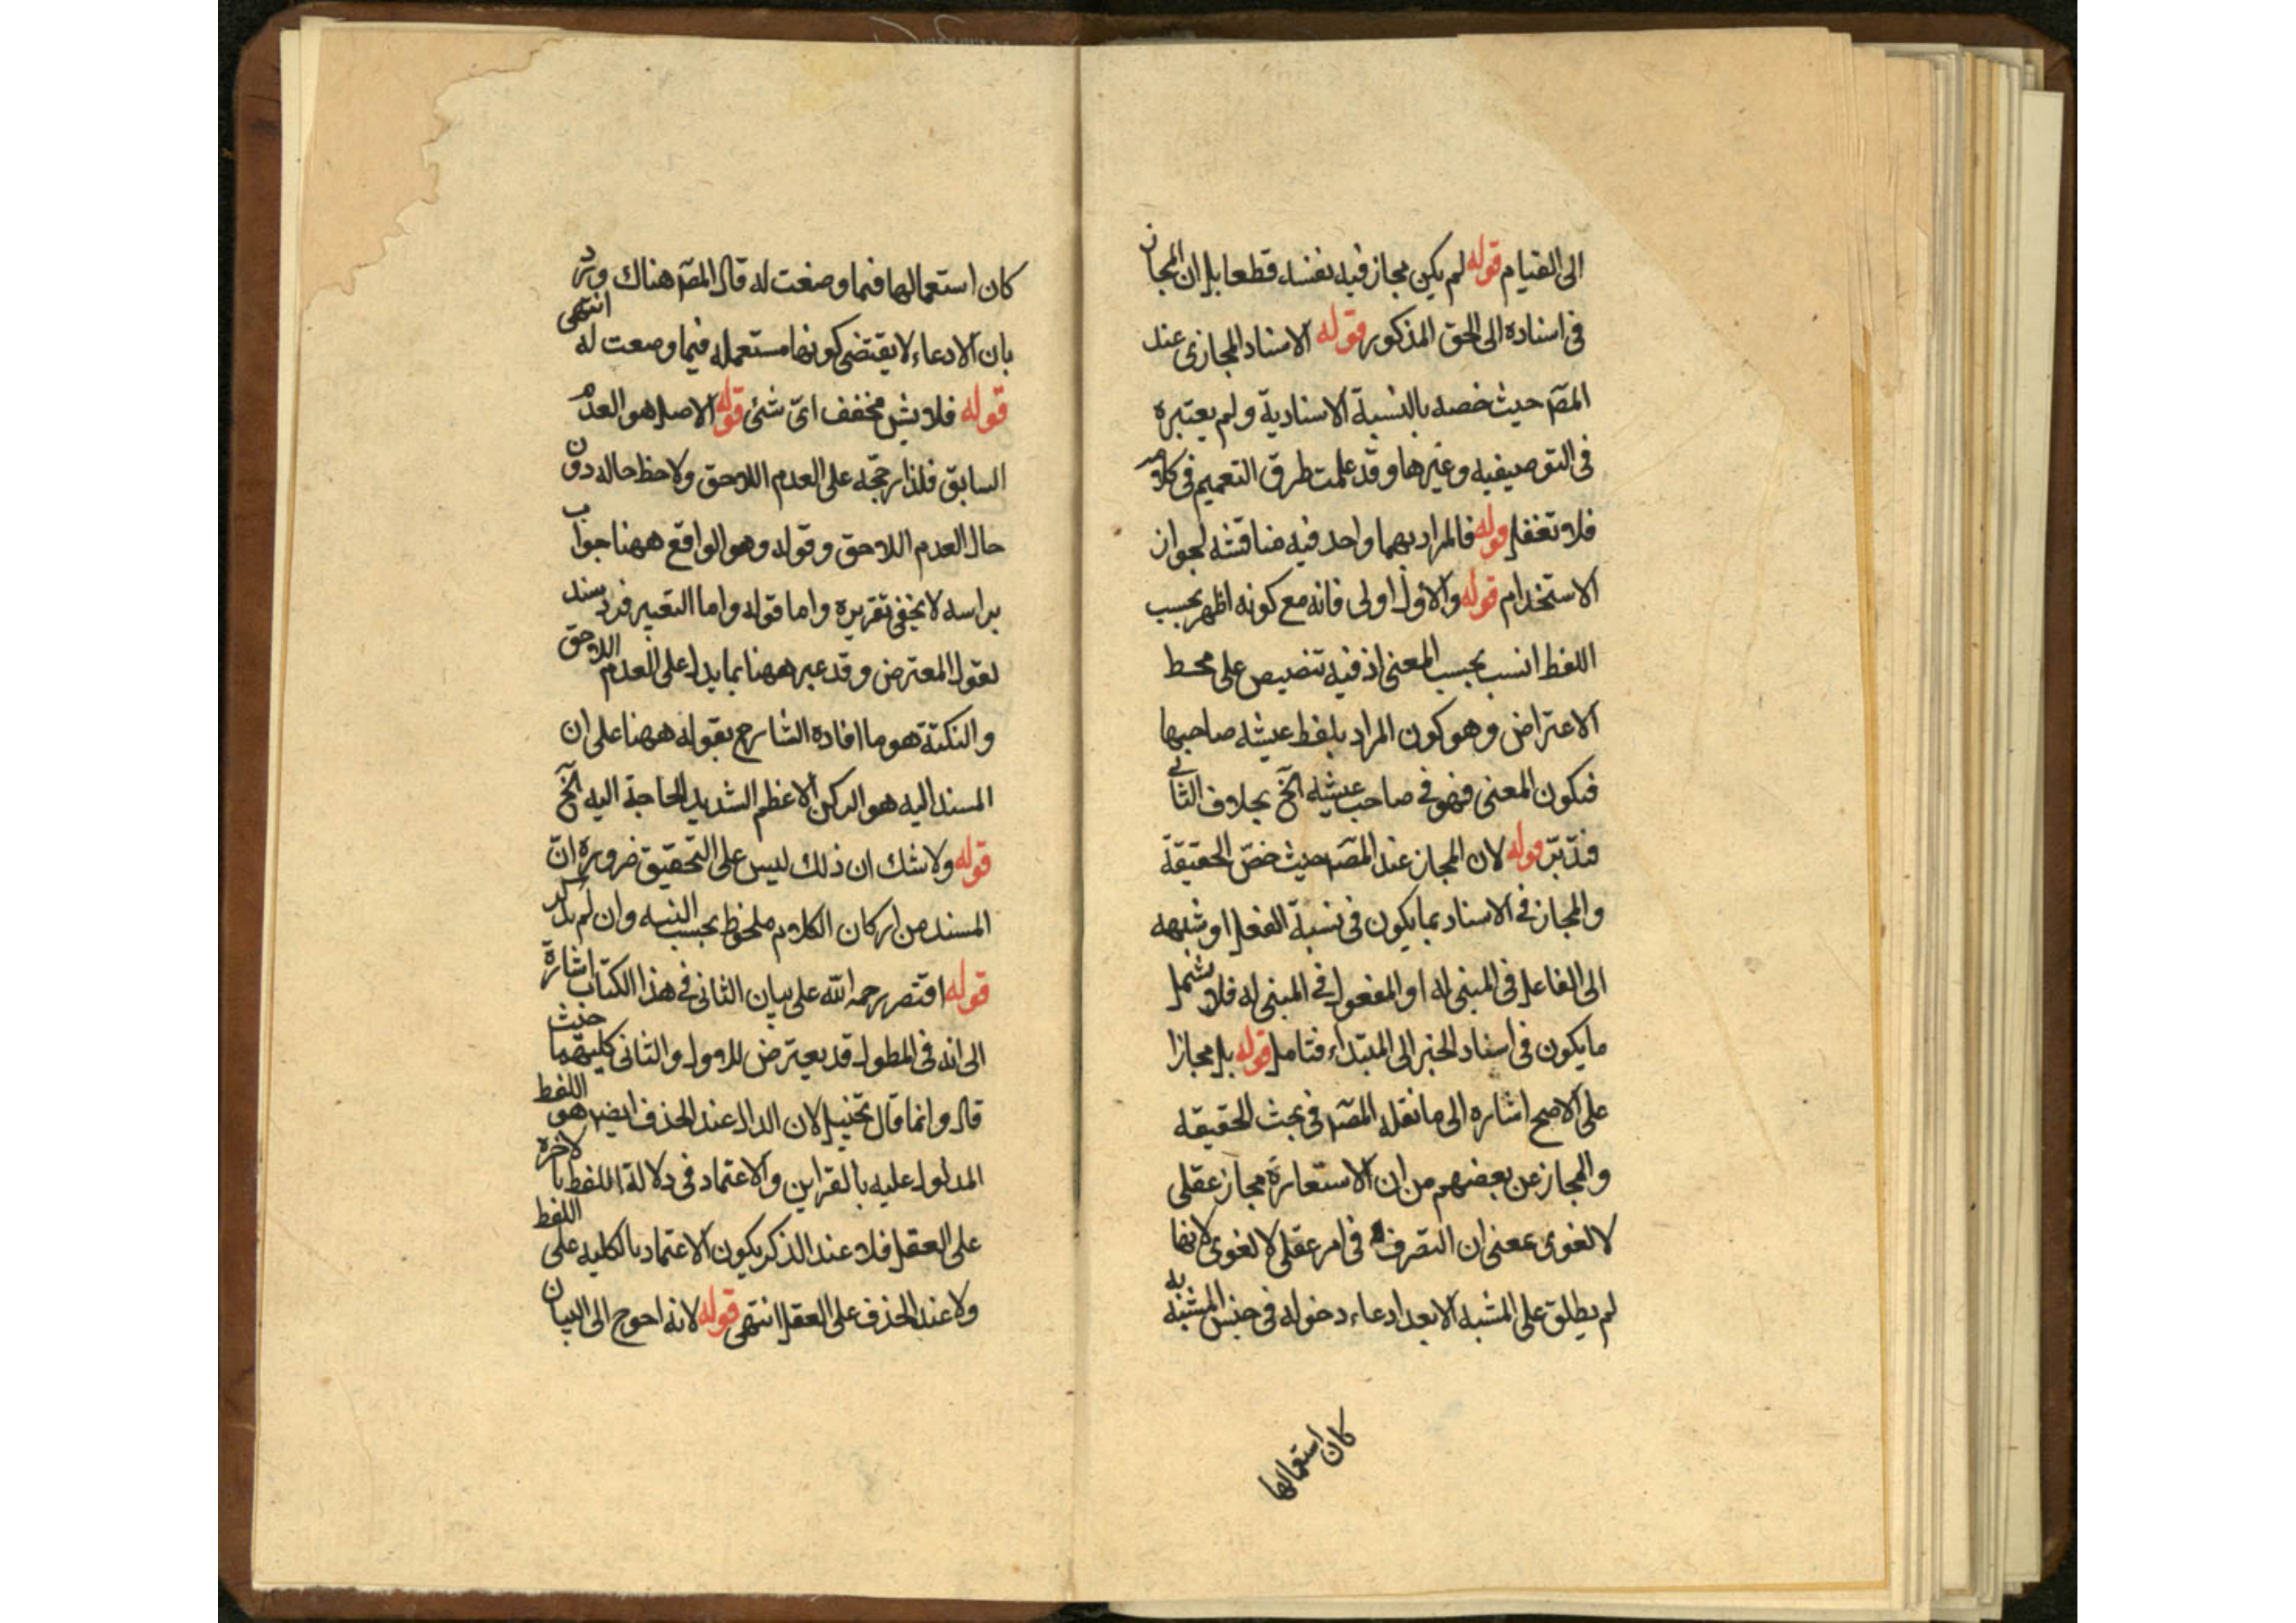 الى القيام قوله لم يكن مجاز فيه نفسه قطعا بل ان المجاز
فى اسناده الى الحق المذكور قوله الاسناد المجازى عند
المصـ حيث خصه بالنسبة الاسنادية ولم يعتبره
فى التوصيفيه وغيرها وقد علمت طرق التعميم فى كلامه
فلا تغفل قوله فالمراد بهما واحد فيه مناقشه لجواز
الاستخدام قوله والاول اولى فانه مع كونه اظهر بحسب
اللفظ انسب بحسب المعنى اذ فيه تنصيص على محط
الاعتراض وهو كون المراد بلفظ عيشه صاحبها
فيكون المعنى فهو فى صاحب عيشه الخ بخلاف الثانے
فتدبّر قوله لان المجاز عند المصـ حيث خصّ الحقيقة
والمجاز فى الاسناد بما يكون فى نسبة الفعل او شبهه
الى الفاعل فى المبنى له او المفعول فى المبنى له فلا يشمل
ما يكون فى اسناد الخبر الى المبتداء فتامل قوله بل مجازا
على الاصح اشاره الى ما نقله المصـ فى بحث الحقيقه
والمجاز عن بعضهم من ان الاستعارة مجاز عقلى
لا لغوى بمعنى ان التصرف فى امر عقلى لا لغوى لانها
لم يطلق على المشبه الا بعد ادعاء دخوله فى جنس المشبه به
كان استعمالها
كان استعمالها فيما وضعت له قال المصـ هناك ورد
بان الادعاء لا يقتضى كونها مستعمله فيما وضعت له انتهى
قوله فلا يش مخفف اىّ شئ قوله الاصل هو العدم
السابق فلذا رجّحه على العدم اللاحق ولاحظ حاله دون
حال العدم اللاحق وقوله وهو الواقع ههنا جواب
براسه لا يخفى تقريره واما قوله واما التعبير فرد سند
لقول المعترض وقد عبر ههنا بما يدل على العدم اللاحق
والنكتة هو ما افاده الشارح بقوله ههنا على ان
المسند اليه هو الركن الاعظم الشديد الحاجة اليه الخ
قوله ولا شك ان ذلك ليس على التحقيق ضرورة انّ
المسند من اركان الكلام ملحوظ بحسب النيه وان لم يذكر
قوله اقتصر رحمه الله على بيان الثانى فى هذا الكتاب اشارة
الى انه فى المطول قد يعترض للاول والثانى كليهما حيث
قال وانما قال تخييل لان الدال عند الحذف ايضا هو اللفظ
المدلول عليه بالقراين والاعتماد فى دلالة اللفظ بالاخرة
على العقل فلا عند الذكر يكون الاعتماد بالكليه على اللفظ
ولا عند الحذف على العقل انتهى قوله لانه احوج الى البيان